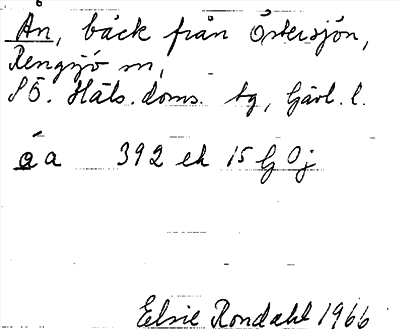 Ån, bäck från Östersjön,
Rengsjö sn,
SÖ. Häls. doms. tg, Gävl. l.
åa 392 ek 15 G Oj
Elsie Rondahl 1966